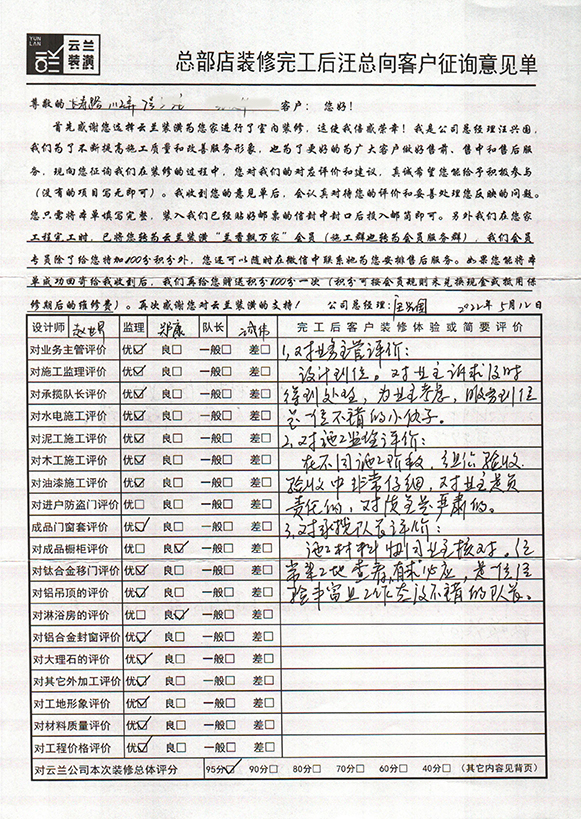 YUN LAN 云兰装潢
总部店装修完工后汪总向客户征询意见单
尊敬的 客户：您好！
首先感谢您选择云兰装潢为您家进行了室内装修，这使我倍感荣幸！我是公司总经理汪兴国，
我们为了不断提高施工质量和改善服务形象，也为了更好的为广大客户做好售前、售中和售后服
务，现向您征询我们在装修的过程中，您对我们的对应评价和建议，真诚希望您能给予积极参与
（没有的项目写无即可）。我收到您的意见单后，会认真对待您的评价和妥善处理您反映的问题。
您只需将本单填写完整，装入我们已经贴好邮票的信封中封口后投入邮筒即可。另外我们在您家
工程完工时，已将您转为云兰装潢“兰香飘万家”会员（施工群也转为会员服务群），我们会员
专员除了给您特加800分积分外，您还可以随时在微信中联系她为您安排售后服务。如果您能将本
单成功回寄给我收到后，我们再给您赠送积分800分一次（积分可按会员规则来兑换现金或报用保
修期后的维修费）。再次感谢您对云兰装潢的支持！ 公司总经理：汪兴国 2022年5月12日
设计师 赵世界 监理 郑康 队长 完工后客户装修体验或简要评价
对业务主管评价 优☑ 良□ 一般□ 差□ 1，对业务主管评价：
对施工监理评价 优☑ 良□ 一般□ 差□ 设计到位。对业主诉求及时
对承揽队长评价 优☑ 良□ 一般□ 差□ 得到处理，为业主考虑，服务到位
对水电施工评价 优☑ 良□ 一般□ 差□ 是一位不错的小伙子。
对泥工施工评价 优☑ 良□ 一般□ 差□ 2，对施工监管评价：
对木工施工评价 优☑ 良□ 一般□ 差□ 在不同施工阶段，组织验收
对油漆施工评价 优☑ 良□ 一般□ 差□ 验收中非常仔细，对业主是负
对进户防盗门评价 优□ 良□ 一般□ 差□ 责任的，对质量是严肃的。
成品门窗套评价 优☑ 良□ 一般□ 差□ 3，对承揽队长评价：
对成品橱柜评价 优□ 良☑ 一般□ 差□ 施工材料协同业主核对。经
对钛合金移门评价 优☑ 良□ 一般□ 差□ 常来工地查看，有求必应，是一位经
对铝吊顶的评价 优☑ 良□ 一般□ 差□ 验丰富且工作态度不错的队长。
对淋浴房的评价 优□ 良☑ 一般□ 差□
对铝合金封窗评价 优☑ 良□ 一般□ 差□
对大理石的评价 优☑ 良□ 一般□ 差□
对其它外加工评价 优☑ 良□ 一般□ 差□
对工地形象评价 优☑ 良□ 一般□ 差□
对材料质量评价 优☑ 良□ 一般□ 差□
对工程价格评价 优☑ 良□ 一般□ 差□
对云兰公司本次装修总体评分 95分☑ 90分□ 80分□ 70分□ 60分□ 40分□ （其它内容见背页）